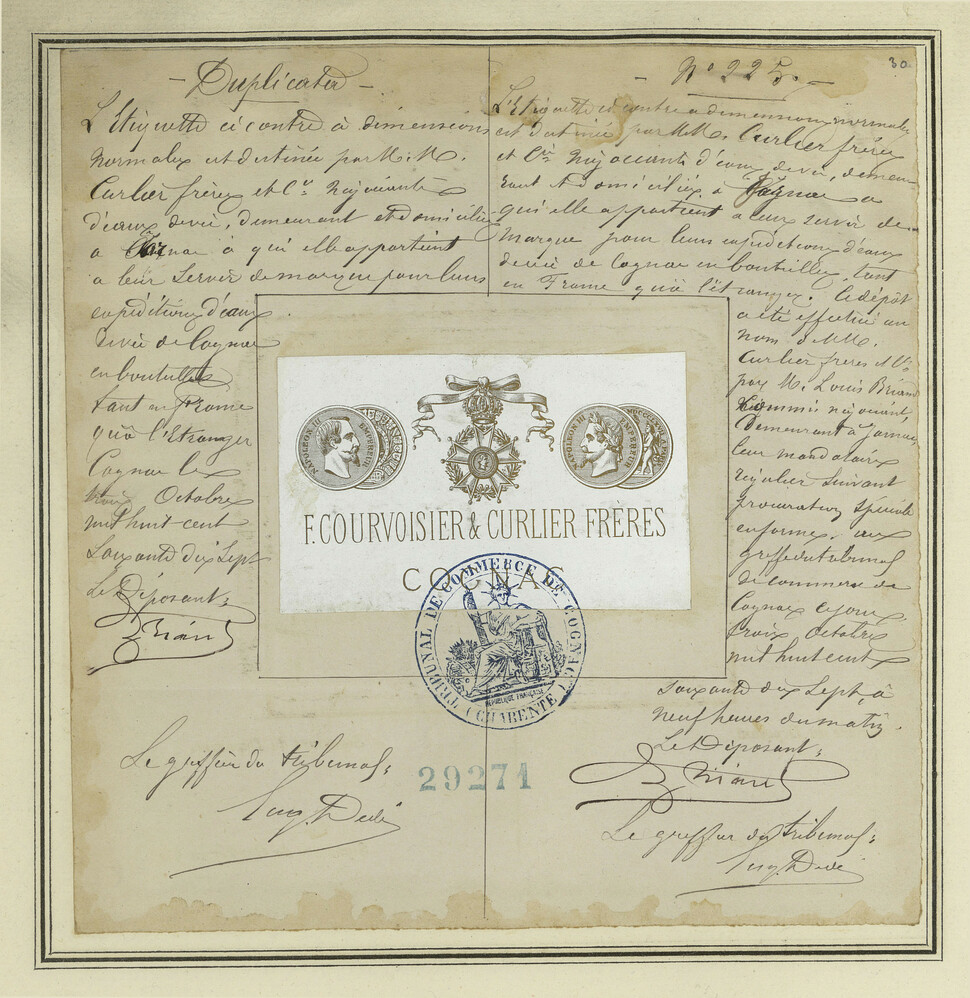 - Duplicata -
L'Etiquette ci contre à dimensions
normales est destinée par M.M.
Curlier frères et Cie Négociants
d'eaux de vie, demeurant et domiciliés
à Cognac à qui elle appartient
a leur servir de marque pour leurs
expéditions d'eaux
de vie de Cognac
en bouteilles
tant en France
qu'à l'Etranger
Cognac le
trois Octobre
mil huit-cent
Soixante dix Sept
Le Déposant:
Briand
Le greffier du tribunal:
Eug. Dedé
- No 225. -
30
L'Etiquette ci contre a dimensions normales
est destinée par M.M. Curlier frères
et Cie Négociants d'eaux de vie, demeu-
rant et domiciliés à Cognac a
qui elle appartient a leur servir de
marque pour leurs expéditions d'eaux
de vie de Cognac en bouteilles, tant
en France qu'à l'étranger. Le dépôt
a été effectué au
nom de M.M.
Curlier frères et Cie
par M. Louis Briand
Commis négociant,
demeurant à Jarnac
leur mandataire
régulier suivant
procuration spéciale
en forme, aux
greffe du tribunal
de commerce de
Cognac ce jour
trois Octobre
mil huit cent
soixante dix sept à
neuf heures du matin.
Le Déposant:
Briand
Le greffier du tribunal:
Eug. Dedé
NAPOLEON III EMPEREUR
NAPOLEON III EMPEREUR
F. COURVOISIER & CURLIER FRÈRES
COGNAC
TRIBUNAL DE COMMERCE DE COGNAC
(CHARENTE)
RÉPUBLIQUE FRANÇAISE
29271